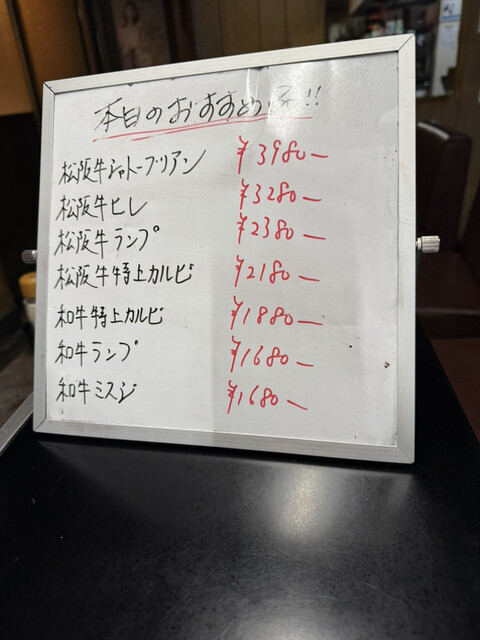 本日のおすすめ!!
松阪牛シャトーブリアン ¥3980ー
松阪牛ヒレ ¥3280ー
松阪牛ランプ ¥2380ー
松阪牛特上カルビ ¥2180ー
和牛特上カルビ ¥1880ー
和牛ランプ ¥1680ー
和牛ミスジ ¥1680ー